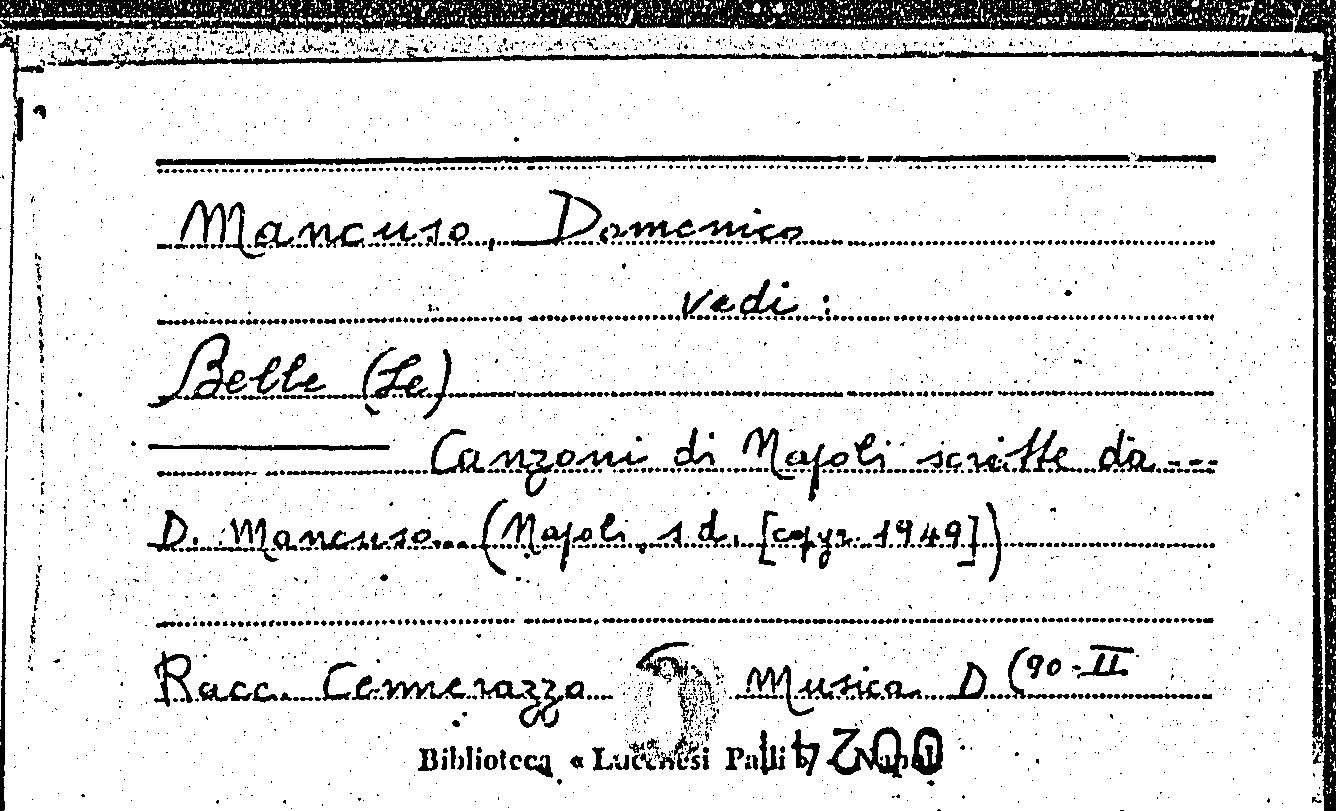 Mancuso, Domenico
vedi :
Belle (Le)
Canzoni di Napoli scritte da ---
D. Mancuso... (Napoli, s. d. [copyr. 1949])
Racc. Cennerazzo Musica D (90-II
Biblioteca « Lucchesi Palli